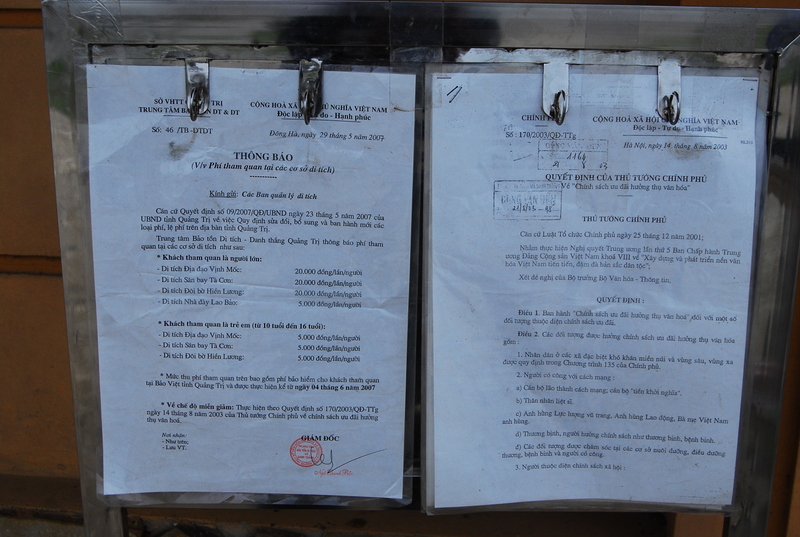 SỞ VHTT TRỊ
TRUNG TÂM BẢ N DT & DT
Số: 46 /TB-DTDT
CỘNG HOÀ XÃ HỦ NGHĨA VIỆT NAM
Độc lập do - Hạnh phúc
Đông Hà, ngày 29 tháng 5 năm 2007
THÔNG BÁO
(V/v Phí tham quan tại các cơ sở di tích)
Kính gửi: Các Ban quản lý di tích
Căn cứ Quyết định số 09/2007/QĐ/UBND ngày 23 tháng 5 năm 2007 của
UBND tỉnh Quảng Trị về việc Quy định sửa đổi, bổ sung và ban hành mới các
loại phí, lệ phí trên địa bàn tỉnh Quảng Trị.
Trung tâm Bảo tồn Di tích - Danh thắng Quảng Trị thông báo phí tham
quan tại các cơ sở di tích như sau:
* Khách tham quan là người lớn:
- Di tích Địa đạo Vịnh Mốc: 20.000 đồng/lần/người
- Di tích Sân bay Tà Cơn: 20.000 đồng/lần/người
- Di tích Đôi bờ Hiền Lương: 20.000 đồng/lần/người
- Di tích Nhà đày Lao Bảo: 5.000 đồng/lần/người
* Khách tham quan là trẻ em (từ 10 tuổi đến 16 tuổi):
- Di tích Địa đạo Vịnh Mốc: 5.000 đồng/lần/người
- Di tích Sân bay Tà Cơn: 5.000 đồng/lần/người
- Di tích Đôi bờ Hiền Lương: 5.000 đồng/lần/người
* Mức thu phí tham quan trên bao gồm phí bảo hiểm cho khách tham quan
tại Bảo Việt tỉnh Quảng Trị và được thực hiện kể từ ngày 04 tháng 06 năm 2007
* Về chế độ miễn giảm: Thực hiện theo Quyết định số 170/2003/QĐ-TTg
ngày 14 tháng 8 năm 2003 của Thủ tướng Chính phủ về chính sách ưu đãi hưởng
thụ văn hoá.
Nơi nhận:
- Như trên;
- Lưu VT.
GIÁM ĐỐC
CHÍNH P
Số: 170/2003/QĐ-TTg
CỘNG HOÀ XÃ HỘI C GHĨA VIỆT NAM
Độc lập - Tự do - Hạnh phúc
Hà Nội, ngày 14 tháng 8 năm 2003
1164
QUYẾT ĐỊNH CỦA THỦ TƯỚNG CHÍNH PHỦ
Về "Chính sách ưu đãi hưởng thụ văn hóa"
CÔNG VĂN ĐẾN
THỦ TƯỚNG CHÍNH PHỦ
Căn cứ Luật Tổ chức Chính phủ ngày 25 tháng 12 năm 2001;
Nhằm thực hiện Nghị quyết Trung ương lần thứ 5 Ban Chấp hành Trung
ương Đảng Cộng sản Việt Nam khoá VIII về "Xây dựng và phát triển nền văn
hóa Việt Nam tiên tiến, đậm đà bản sắc dân tộc";
Xét đề nghị của Bộ trưởng Bộ Văn hóa - Thông tin,
QUYẾT ĐỊNH :
Điều 1. Ban hành "Chính sách ưu đãi hưởng thụ văn hoá" đối với một số
đối tượng thuộc diện chính sách ưu đãi.
Điều 2. Các đối tượng được hưởng chính sách ưu đãi hưởng thụ văn hóa
gồm :
1. Nhân dân ở các xã đặc biệt khó khăn miền núi và vùng sâu, vùng xa
được quy định trong Chương trình 135 của Chính phủ.
2. Người có công với cách mạng :
a) Cán bộ lão thành cách mạng; cán bộ "tiền khởi nghĩa".
b) Thân nhân liệt sĩ.
c) Anh hùng Lực lượng vũ trang, Anh hùng Lao động, Bà mẹ Việt Nam
anh hùng.
d) Thương binh, người hưởng chính sách như thương binh, bệnh binh.
đ) Các đối tượng được chăm sóc tại các cơ sở nuôi dưỡng, điều dưỡng
thương, bệnh binh và người có công.
3. Người thuộc diện chính sách xã hội :